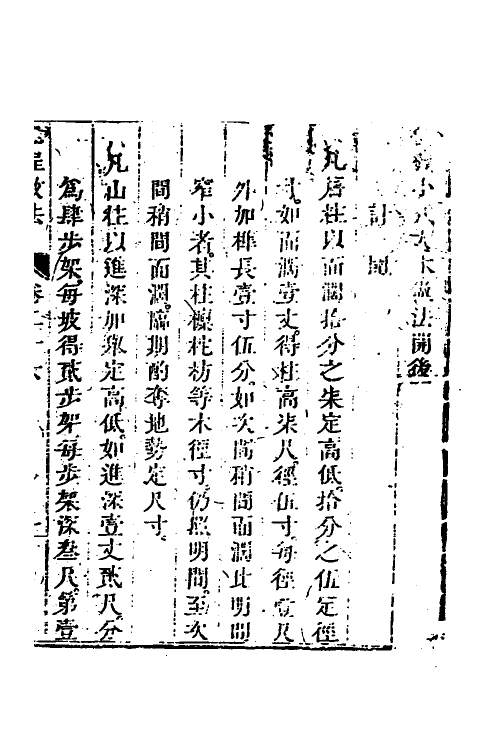 小式大木做法開後
計開
凡簷柱以面濶拾分之柒定高低拾分之伍定徑
寸如面濶壹丈得柱高柒尺徑伍寸每徑壹尺
外加榫長壹寸伍分如次間稍間面濶比明間
窄小者其柱檩柁枋等木徑寸仍照明間至次
間稍間面濶臨期酌奪地勢定尺寸
凡山柱以進深加舉定高低如進深壹丈貳尺分
爲肆步架每坡得貳步架每步架深叁尺第壹
工程做法 卷二十六